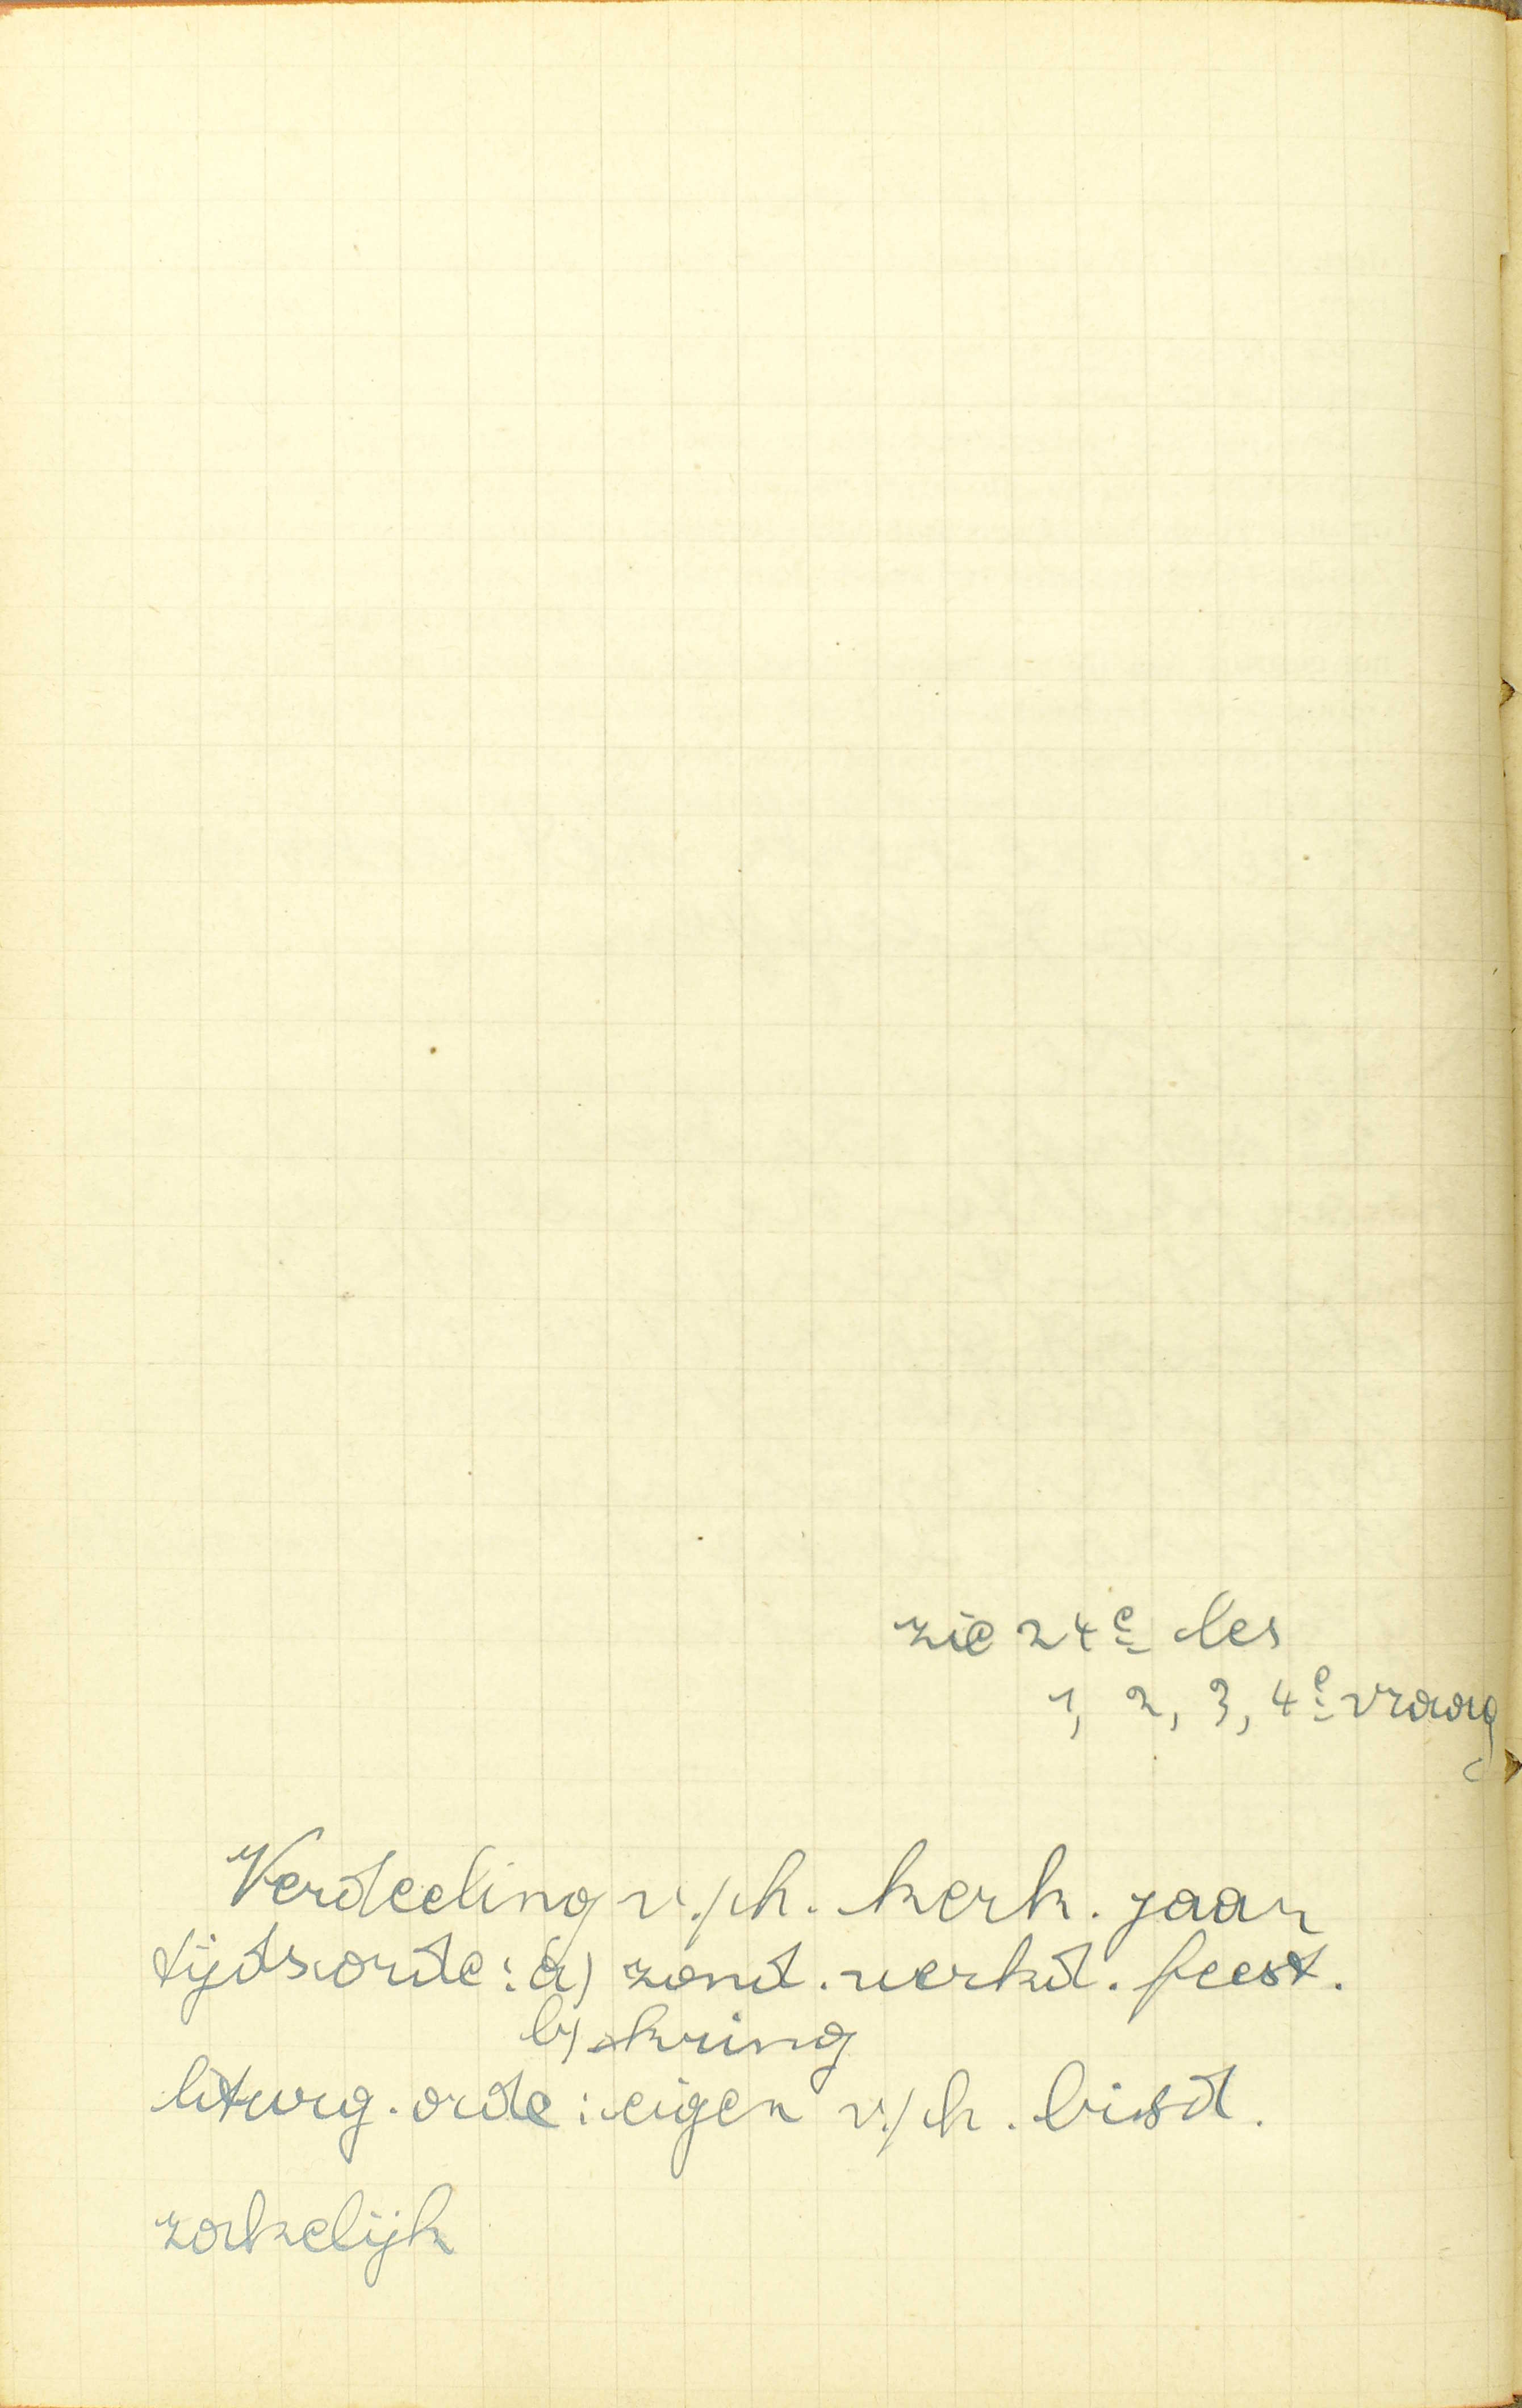 zie 24e les
1, 2, 3, 4e vraag
Verdeeling v/h. kerk. jaar
tijdsorde: a) zond. werkd. feest.
b) kring
liturg. orde: eigen v/h. bisd.
zakelijk